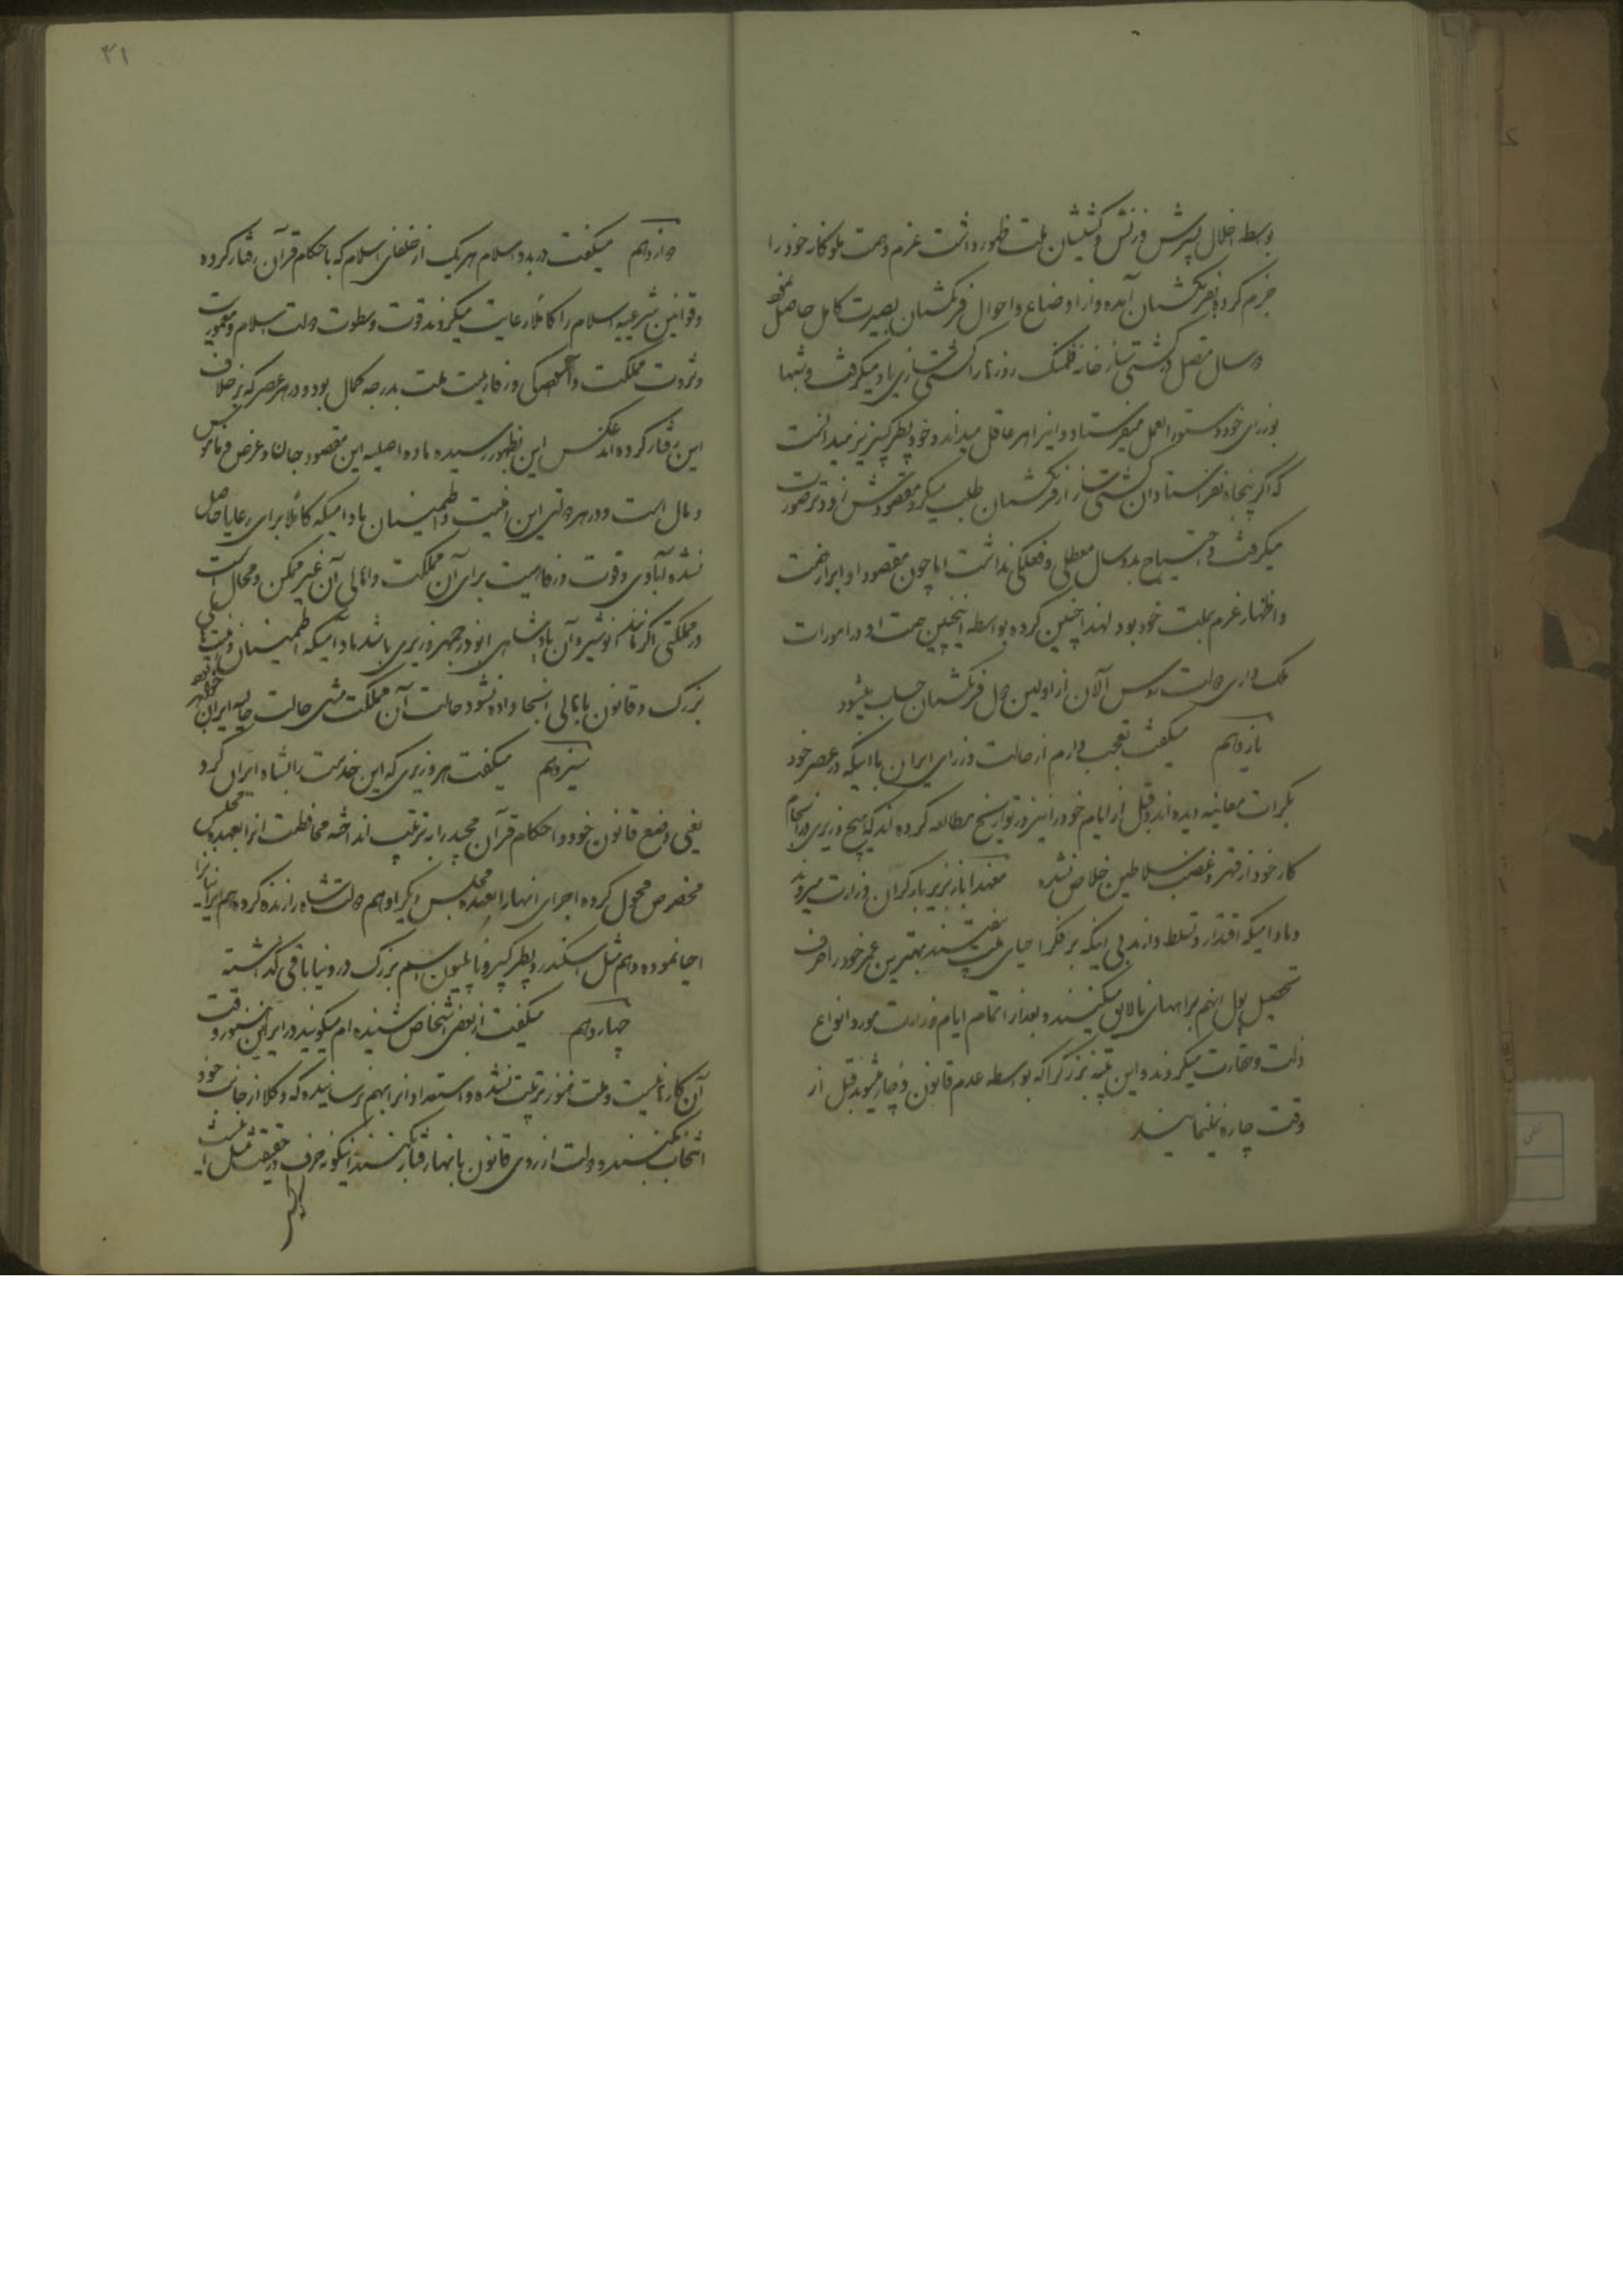 بوسطه اخلال پسرش و زنش و کشیشان ملت ظهور داشت عزم و همت ملوکانه خود را
جزم کرده بفرنگستان آمده و از اوضاع و احوال فرنگستان بصیرت کامل حاصل نموده
دو سال متصل در کشتی ساز خانه فلمنک روزها کشتی سازی یاد میگرفت و شبها
بوزرای خود دستور العمل میفرستاد و اینرا هر عاقل میداند و خود پطر کبیر نیز میدانست
که اگر پنجاه نفر استادان کشتی ساز از فرنگستان طلب میکرد مقصودش زودتر صورت
میگرفت و احتیاج بدو سال معطلی و فعلگی نداشت اما چون مقصود او ابراز همت
و اظهار عزم بملت خود بود لهذا چنین کرده بواسطه اینچنین همت او در امورات
ملک داری دولت روس الآن از اولین دول فرنگستان حساب میشود
یازدهم میگفت تعجب دارم از حالت وزرای ایران با اینکه در عصر خود
بکرات معاینه دیده اند و قبل از ایام خود را نیز در تواریخ مطالعه کرده اند که هیچ وزیری در انجام
کار خود از قهر و غضب سلاطین خلاص نشده معهذا باز بزیر بار گران وزارت میروند
و مادامیکه اقتدار و تسلط دارند بی اینکه بر فکر احیای ملت بیفتند بهترین عمر خود را صرف
تحصیل پول آنهم براههای نالایق میکنند و بعد از اتمام ایام وزارت مورد انواع
ذلت و حقارت میگردند و این بلیه بزرگ را که بواسطه عدم قانون دچار میشوند قبل از
وقت چاره نمینمایند
۳۱
دوازدهم میگفت در بدو اسلام هر یک از خلفای اسلام که باحکام قرآن رفتار کرده
و قوانین شرعیه اسلام را کاملا رعایت میکردند قوت و سطوت دولت اسلام و معموریت
و ثروت مملکت و آسودگی و رفاهیت ملت بدرجه کمال بود و در هر عصر که بر خلاف
این رفتار کرده اند عکس این بظهور رسیده ماده اصلیه این مقصود جان و عرض و ناموس
و مال است و در هر دولتی این امنیت و اطمینان مادامیکه کاملا برای رعایا حاصل
نشده آبادی و قوت و رفاهیت برای آن مملکت و اهالی آن غیر ممکن و محال است
در مملکتی اگر مانند انوشیروان پادشاهی ابوذرجمهر وزیری باشد مادامیکه اطمینان و امنیت باین
بزرگی و قانون باهالی آنجا داده نشود حالت آن مملکت مثل حالت حالیه ایران خواهد بود
سیزدهم میگفت هر وزیری که این خدمت را بشاه ایران کرد
یعنی وضع قانون خود و احکام قرآن مجید را بترتیب انداخته محافظت آنرا بعهده مجلس
مخصوص محول کرده اجرای آنها را بعهده مجلس دیگر او هم دولت شاه را زنده کرده و هم ایرانیانرا
احیا نموده و هم مثل اسکندر و پطر کبیر و ناپلیون اسم بزرگ در دنیا باقی گذاشته
چهاردهم میگفت از بعضی اشخاص شنیده ام میگویند در ایران هنوز وقت
آن کارها نیست و ملت هنوز تربیت نشده و استعداد آنرا بهم نرسانیده که وکلا از جانب خود
انتخاب بکنند و دولت از روی قانون با آنها رفتار بکنند اینگونه حرف در حقیقت مثل